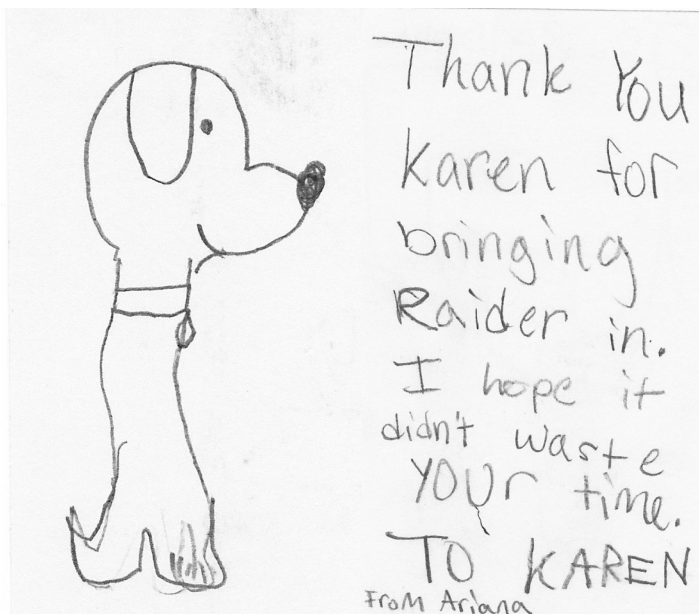 Thank You
Karen for
bringing
Raider in.
I hope it
didn't waste
YOUr time.
TO KAREN
From Ariana